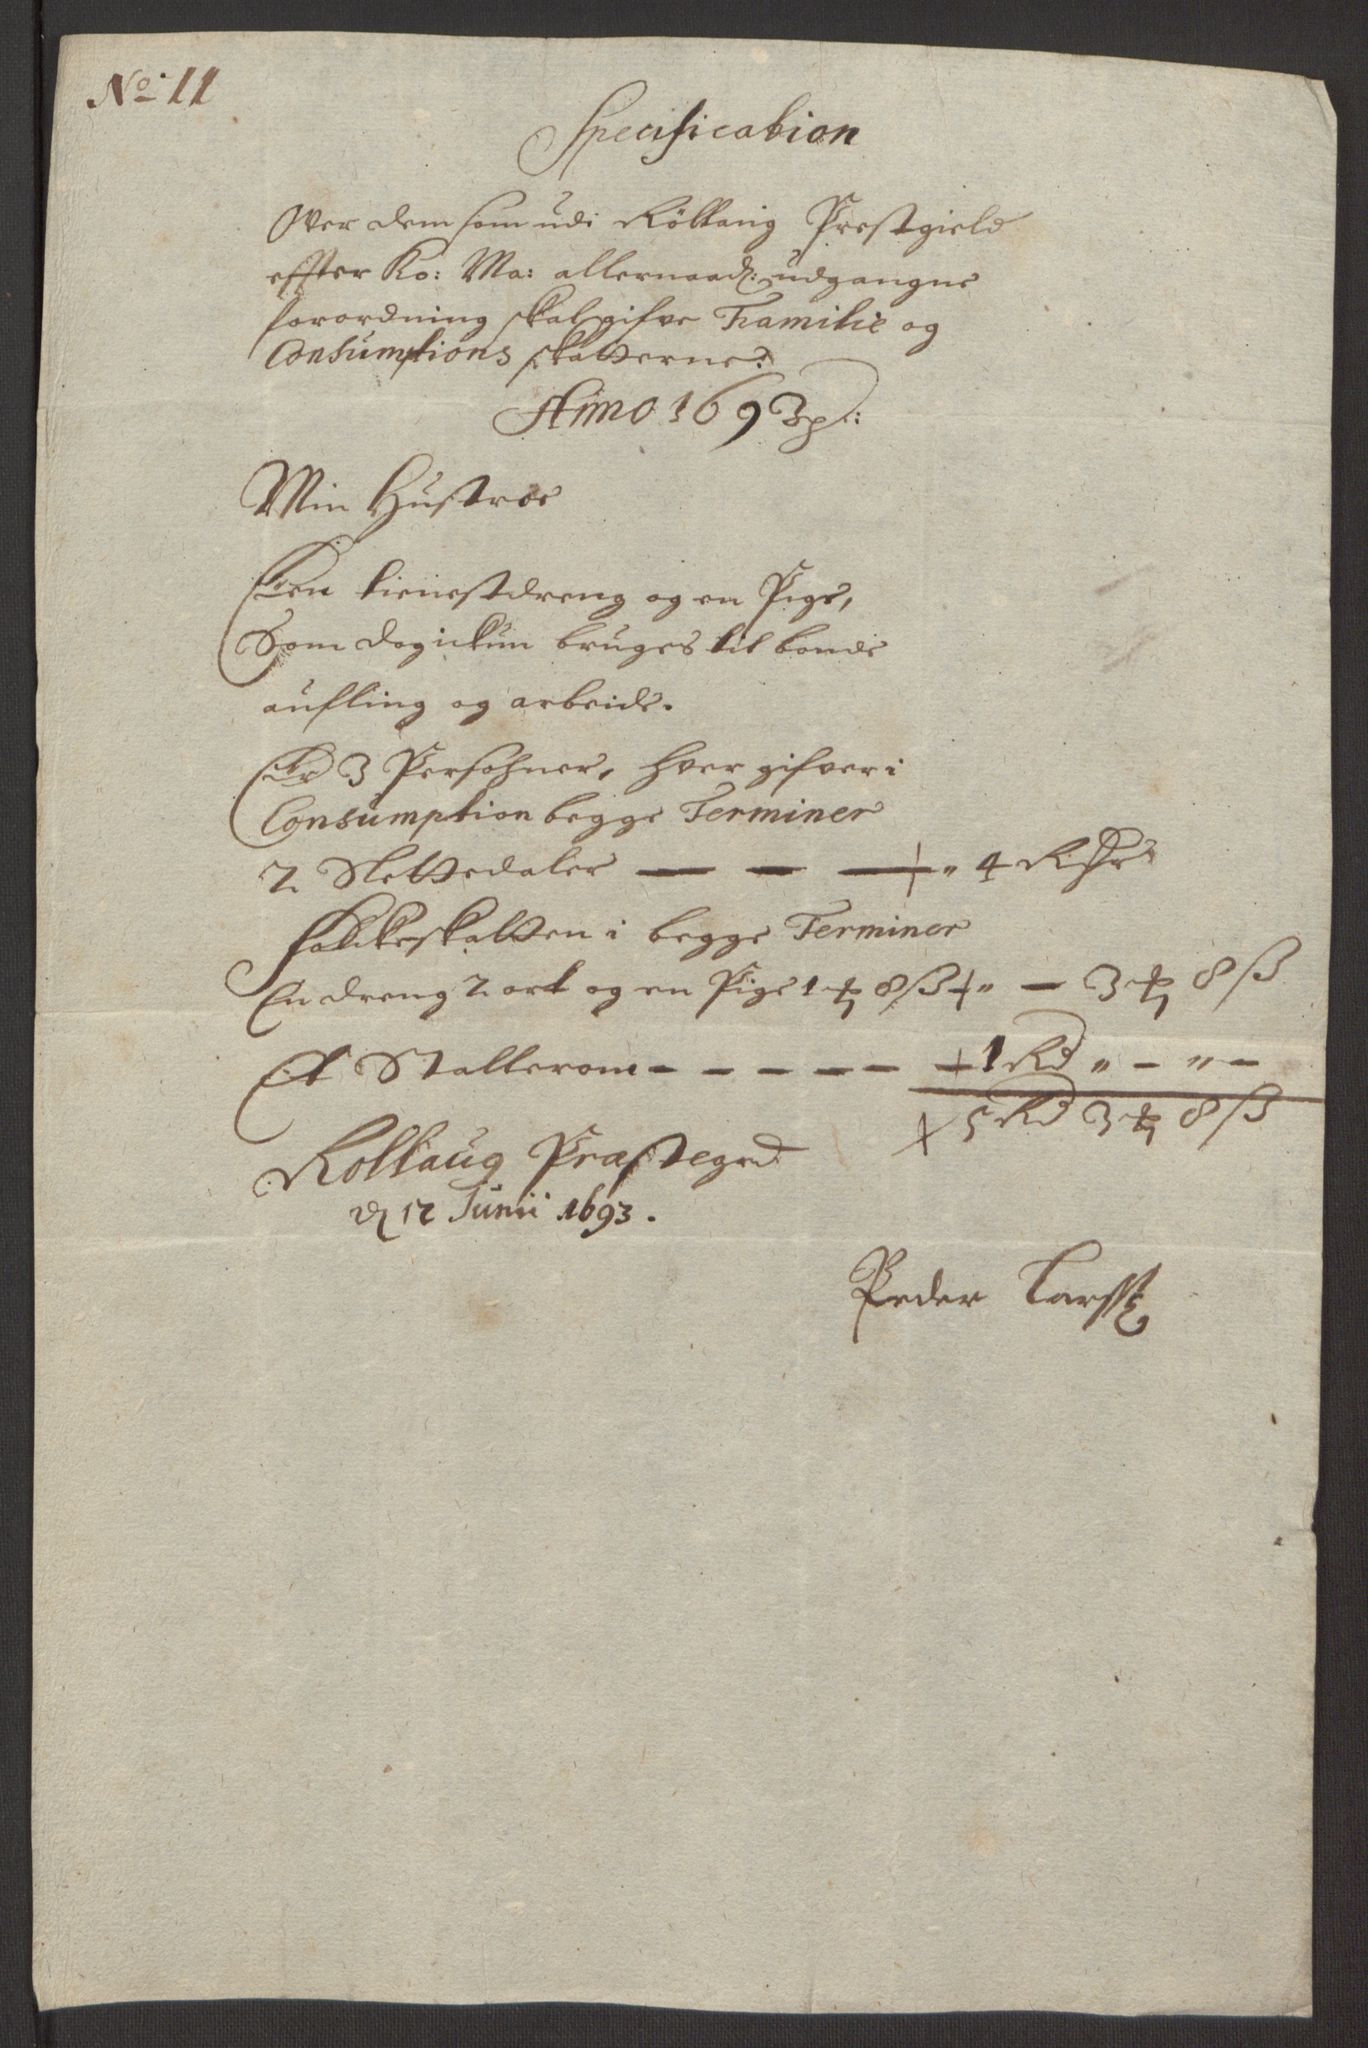 No: 11
Specification
Ofver dem som udi Rollaug Prestgield
effter Ko: Ma: allernaad: udgangne
forordning skal gifve Familie og
Consumptions skatterne:
Anno 1693
Min Hustroe
Een tienestdreng og en Pige,
Som dog ickun bruges til bonde
aufling og arbeide.
Er 3 Persohner, hver gifver i
Consumption begge Terminer
2 Slettedaler — — — „ 4 Rdr
Folckeskatten i begge Terminer
En dreng 2 ort og en Pige 1 ₰ 8 ß „ — 3 ₰ 8 ß
Et Stallerom - - - - - 1 Rd „ - „ -
5 Rd 3 ₰ 8 ß
Rollaug Præstegrd
d 12 Junii 1693.
Peder Larss